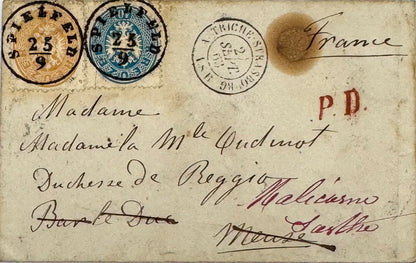 SPIELFELD
25
9
SPIELFELD
25
9
AUTRICHE-STRASBOURG
SEPT.
France
P.D.
Madame
Madame la Mle Oudinot
Duchesse de Reggio
Malicorne
Bar le Duc
Meuse
Sarthe